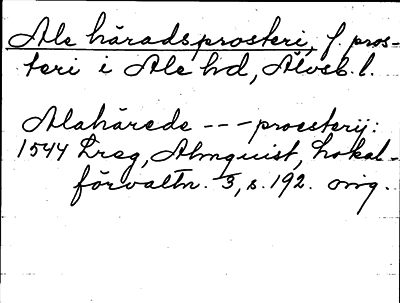 Ale häradsprosteri, f. pros-
teri i Ale hd, Älvsb. l.
Alahärede --- proesterij:
1544 Lreg, Almquist, Lokal-
förvaltn. 3, s. 192. orig.